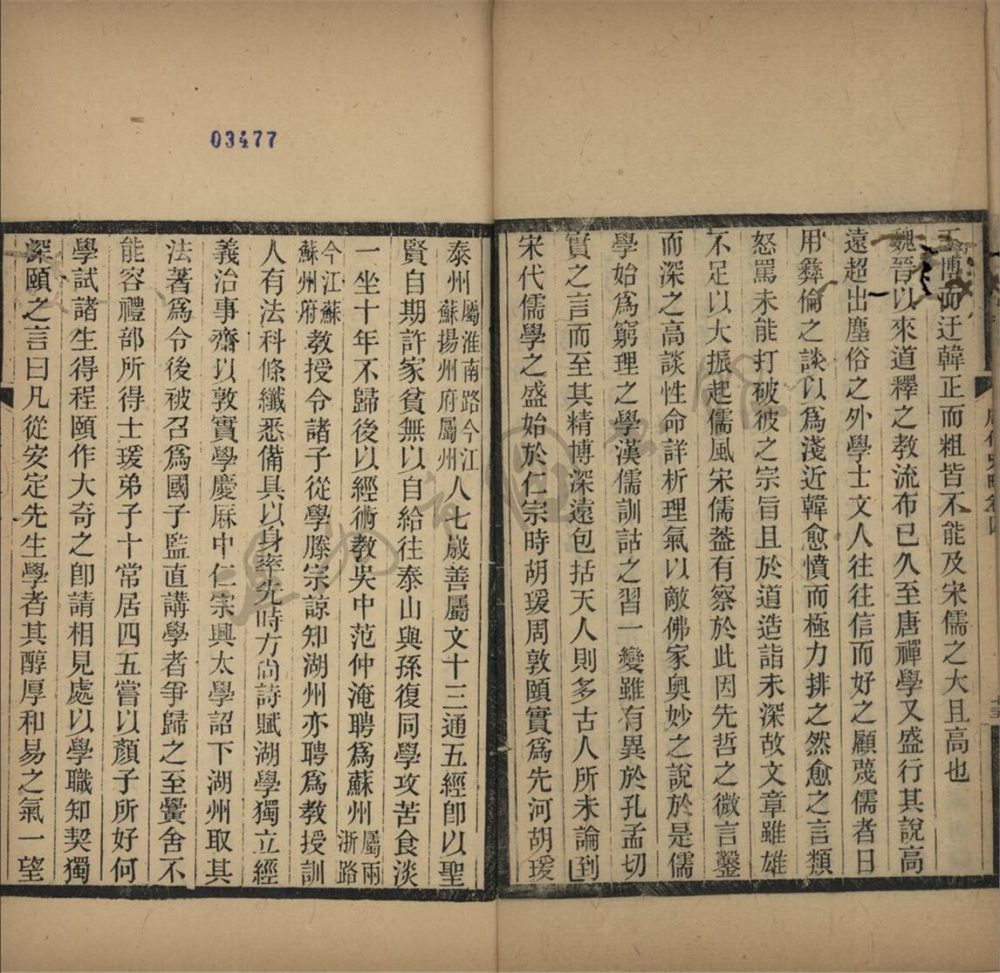 博而迂韓正而粗皆不能及宋儒之大且高也
魏晉以來道釋之教流布已久至唐禪學又盛行其說高
遠超出塵俗之外學士文人往往信而好之顧蔑儒者日
用彝倫之談以爲淺近韓愈憤而極力排之然愈之言類
怒罵未能打破彼之宗旨且於道造詣未深故文章雖雄
不足以大振起儒風宋儒蓋有察於此因先哲之微言鑿
而深之高談性命詳析理氣以敵佛家奧妙之說於是儒
學始爲窮理之學漢儒訓詁之習一變雖有異於孔孟切
實之言而至其精博深遠包括天人則多古人所未論到
宋代儒學之盛始於仁宗時胡瑗周敦頤實爲先河胡瑗
泰州屬淮南路今江蘇揚州府屬州人七歲善屬文十三通五經卽以聖
賢自期許家貧無以自給往泰山與孫復同學攻苦食淡
一坐十年不歸後以經術教吳中范仲淹聘爲蘇州屬兩浙路
今江蘇蘇州府教授令諸子從學滕宗諒知湖州亦聘爲教授訓
人有法科條纖悉備具以身率先時方尚詩賦湖學獨立經
義治事齋以敦實學慶厤中仁宗興太學詔下湖州取其
法著爲令後被召爲國子監直講學者爭歸之至黌舍不
能容禮部所得士瑗弟子十常居四五嘗以顏子所好何
學試諸生得程頤作大奇之卽請相見處以學職知契獨
深頤之言曰凡從安定先生學者其醇厚和易之氣一望
03477